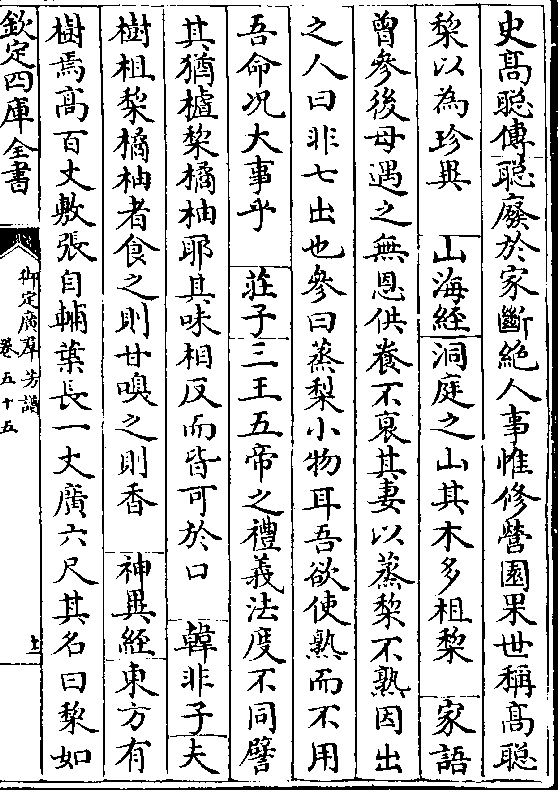 史高聰傳聰廢於家斷絶人事惟修營園果世稱高聰
棃以為珍異　山海經洞庭之山其木多柤棃　家語
曾參後母遇之無恩供養不衰其妻以蒸棃不熟因出
之人曰非七出也參曰蒸梨小物耳吾欲使熟而不用
吾命况大事乎　莊子三王五帝之禮義法度不同譬
其猶樝棃橘柚耶其味相反而皆可於口　韓非子夫
樹柤棃橘柚者食之則甘嗅之則香　神異經東方有
樹焉高百丈敷張自輔葉長一丈廣六尺其名曰棃如
欽定四庫全書
御定廣羣芳譜
卷五十五
上